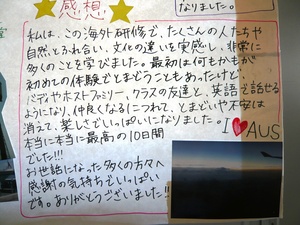 なりました。
感想
私は、この海外研修で、たくさんの人たちや
自然とふれ合い、文化の違いを実感し、非常に
多くのことを学びました。最初は何もかもが
初めての体験でとまどうこともあったけど、
バディやホストファミリー、クラスの友達と、英語で話せる
ようになり、仲良くなるにつれて、とまどいや不安は
消えて、楽しさでいっぱいになりました。I♥AUS
本当に本当に最高の10日間
でした!!!
お世話になった多くの方々へ
感謝の気持ちでいっぱい
です。ありがとうございました!!